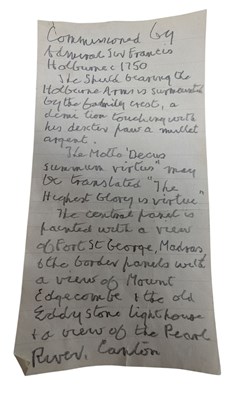 Commissioned by
Admiral Sir Francis
Holburne c 1750
The Shield bearing the
Holburne Arms is surmounted
by the family crest, a
demi lion touching with
his dexter paw a mullet
argent.
"The Motto 'Decus
summum virtus" may
be translated "The
Highest Glory is virtue"
The central panel is
painted with a view
of Fort St George, Madras
& the border panels with
a view of Mount
Edgecombe & the old
Eddystone lighthouse
& a view of the Pearl
River, Canton